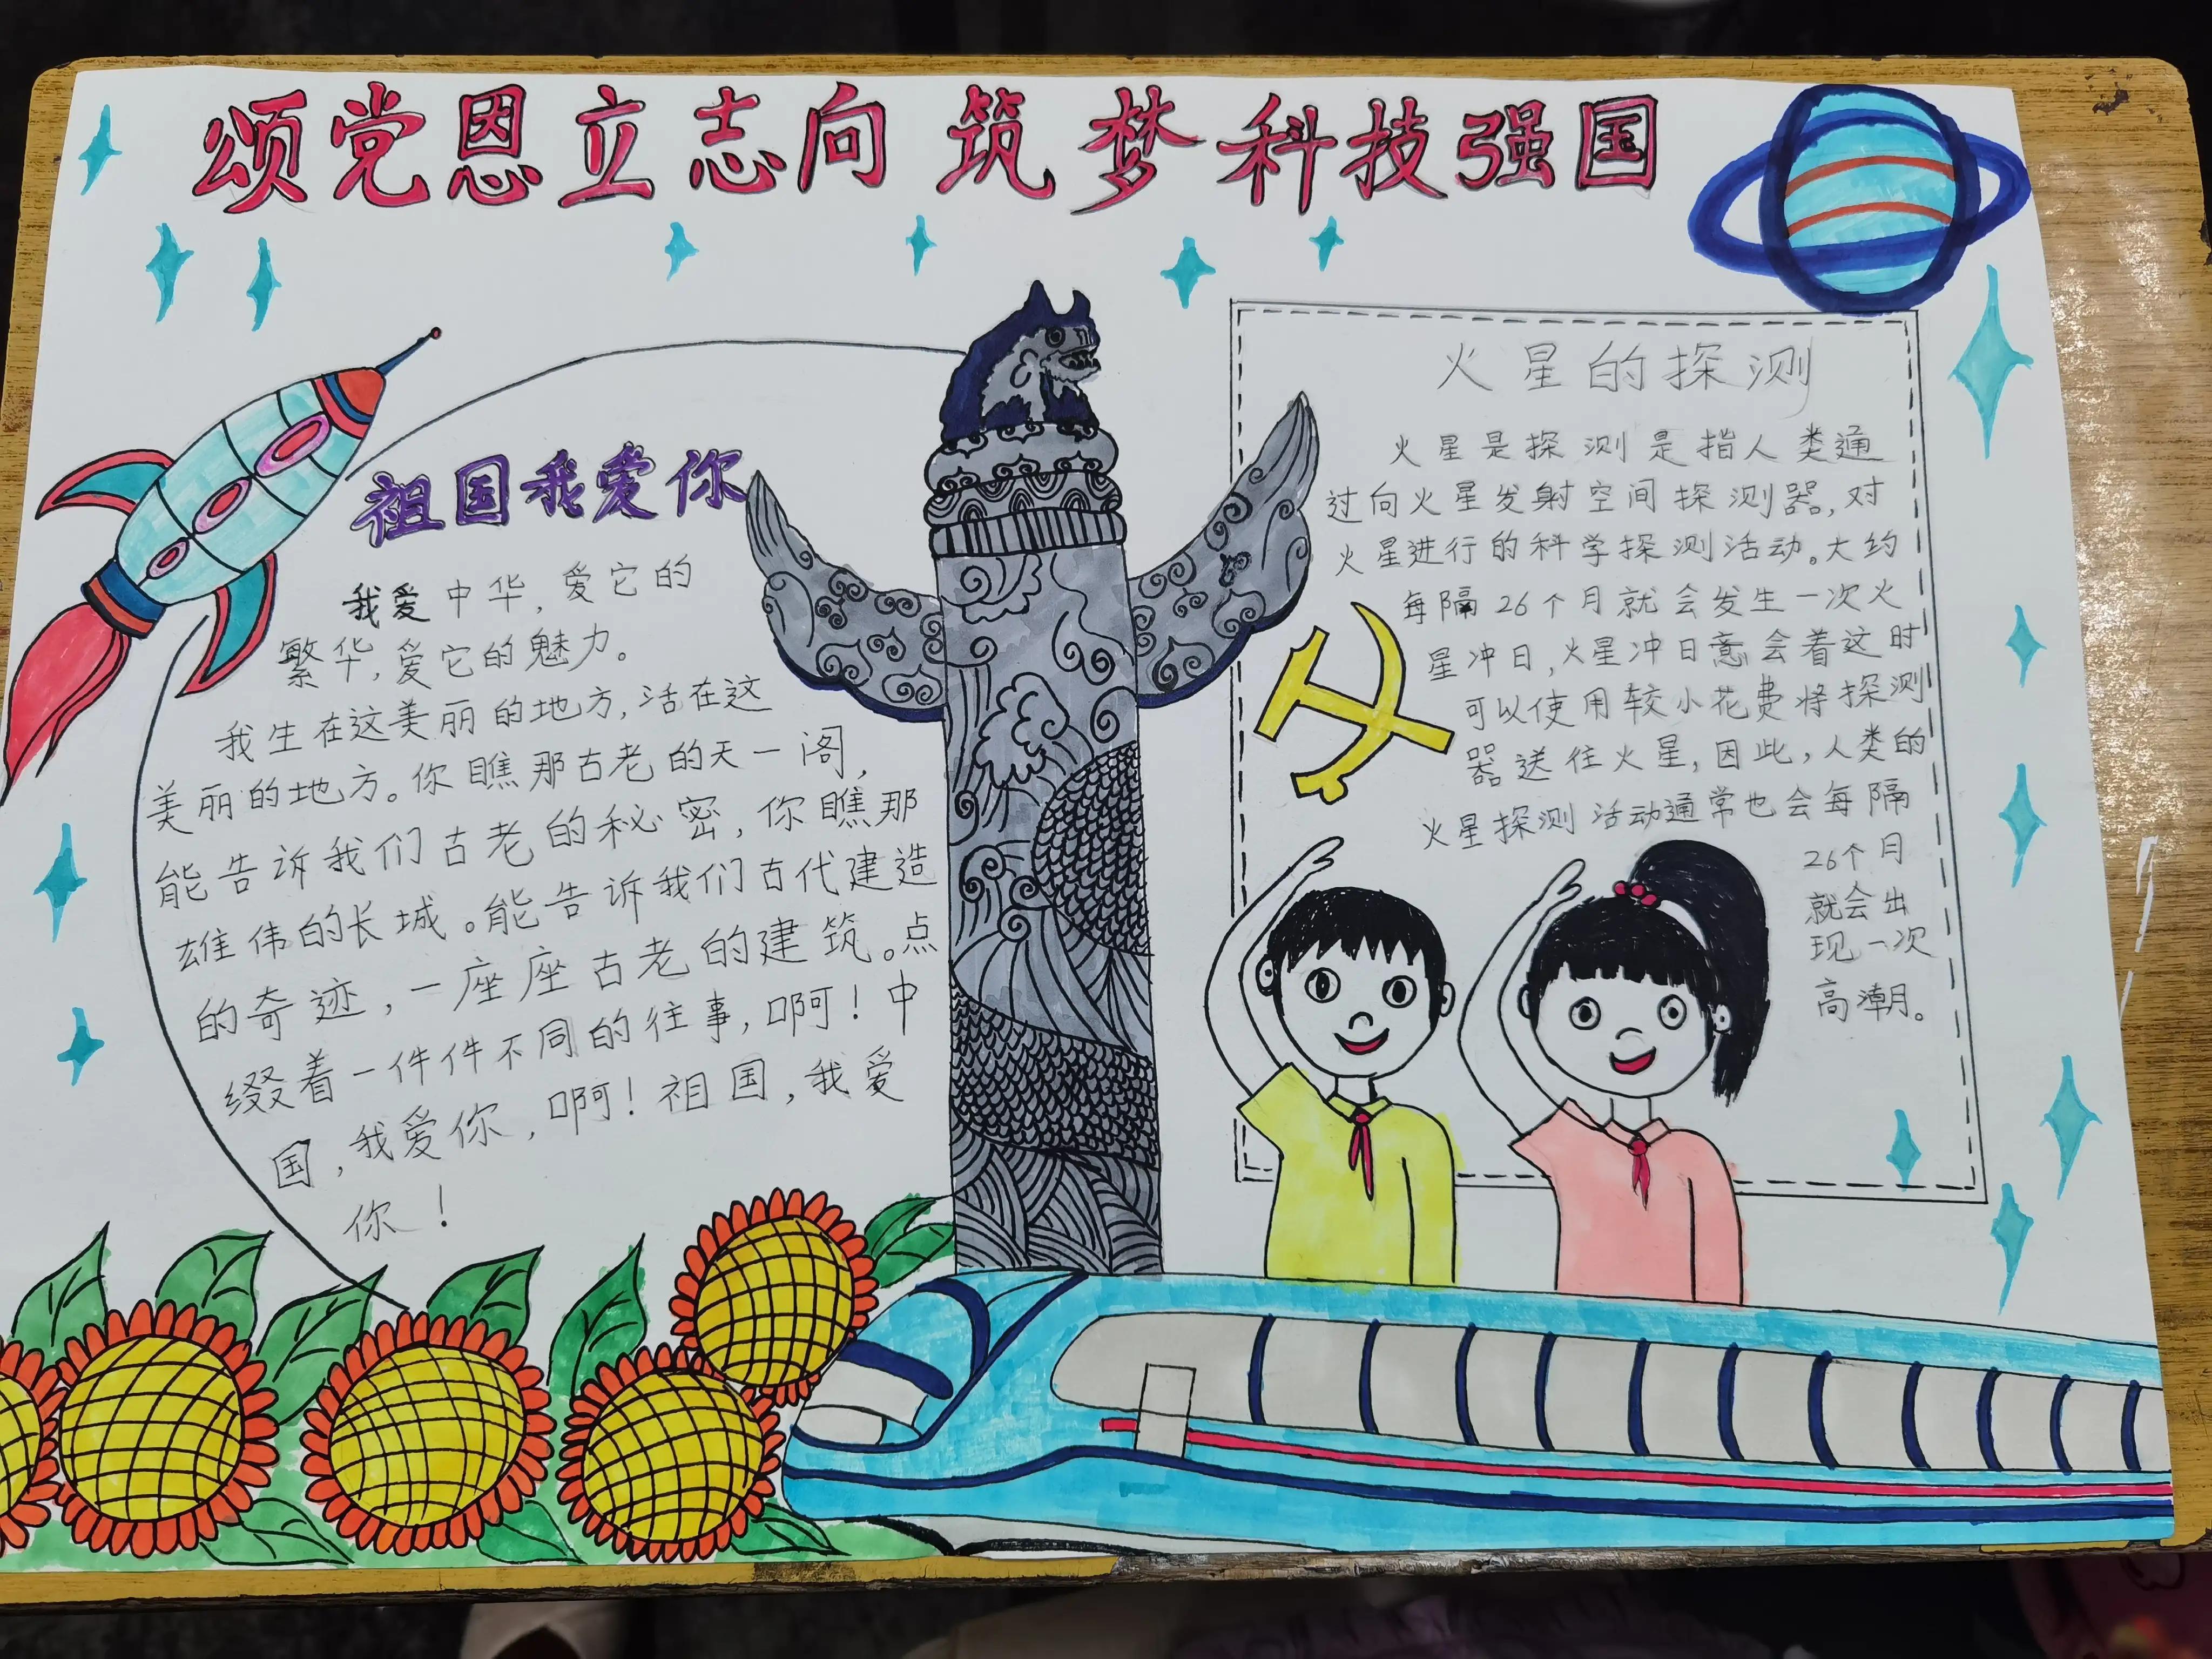 颂党恩立志向 筑梦科技强国
祖国我爱你
我爱中华,爱它的
繁华,爱它的魅力。
我生在这美丽的地方,活在这
美丽的地方。你瞧那古老的天一阁,
能告诉我们古老的秘密,你瞧那
雄伟的长城。能告诉我们古代建造
的奇迹,一座座古老的建筑。点
缀着一件件不同的往事,啊!中
国,我爱你,啊!祖国,我爱
你!
火星的探测
火星是探测是指人类通
过向火星发射空间探测器,对
火星进行的科学探测活动。大约
每隔26个月就会发生一次火
星冲日,火星冲日意会着这时
可以使用较小花费将探测
器送往火星,因此,人类的
火星探测活动通常也会每隔
26个月
就会出
现一次
高潮。